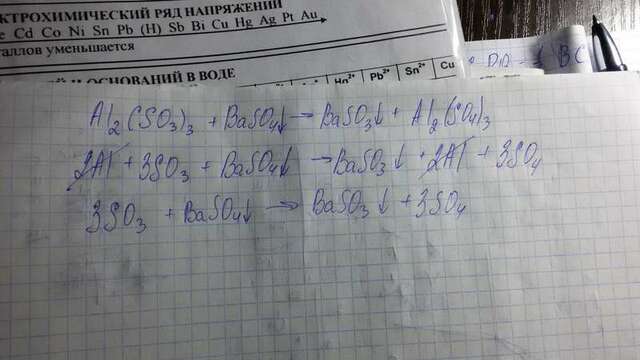 КТРОХИМИЧЕСКИЙ РЯД НАПРЯЖЕНИЙ
e Cd Co Ni Sn Pb (H) Sb Bi Cu Hg Ag Pt Au
таллов уменьшается
И ОСНОВАНИЙ В ВОДЕ
Pb²⁺ Sn²⁺ Cu
BC
Al₂(SO₃)₃ + BaSO₄↓ → BaSO₃↓ + Al₂(SO₄)₃
2Al + 3SO₃ + BaSO₄↓ → BaSO₃↓ + 2Al + 3SO₄
3SO₃ + BaSO₄↓ → BaSO₃↓ + 3SO₄